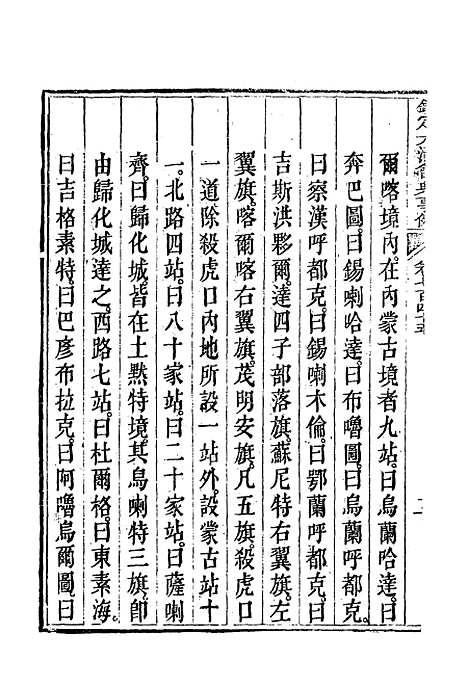 爾喀境內。在內蒙古境者九站。曰烏蘭哈達。曰
奔巴圖。曰錫喇哈達。曰布嚕圖。曰烏蘭呼都克。
曰察漢呼都克。曰錫喇木倫。曰鄂蘭呼都克。曰
吉斯洪夥爾。達四子部落旗。蘇尼特右翼旗。左
翼旗。喀爾喀右翼旗。茂明安旗。凡五旗。殺虎口
一道除殺虎口內地所設一站外。設蒙古站十
一。北路四站。曰八十家站。曰二十家站。曰薩喇
齊。曰歸化城。皆在土默特境。其烏喇特三旗。卽
由歸化城達之。西路七站。曰杜爾格。曰東素海。
曰吉格素特。曰巴彥布拉克。曰阿嚕烏爾圖。曰